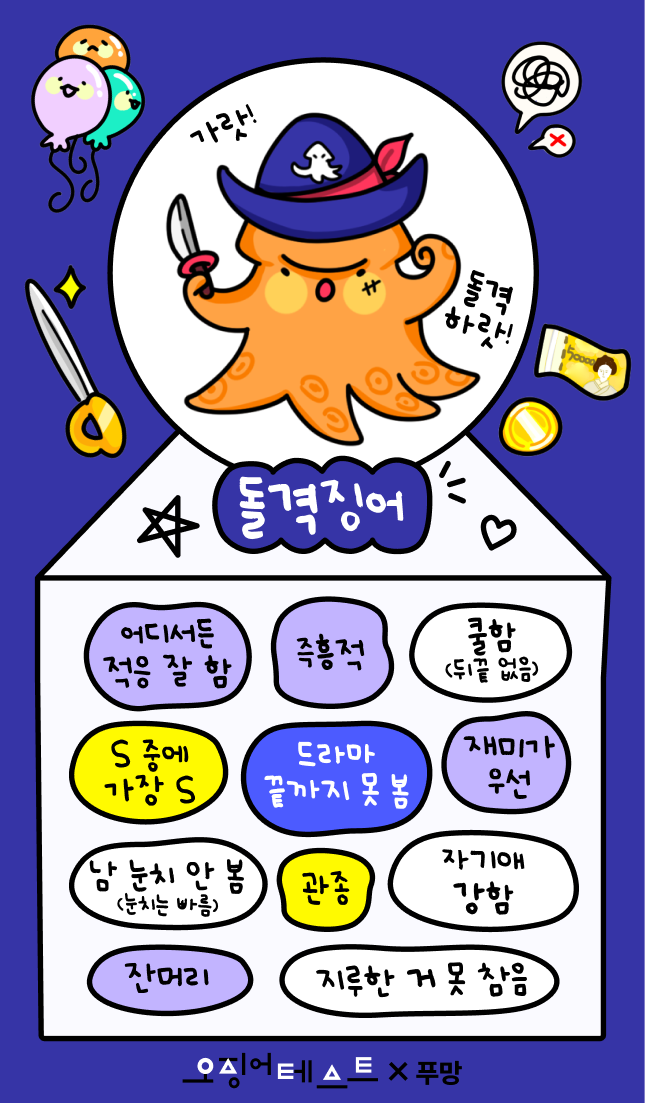 가랏!
돌격
하랏!
50000
돌격징어
어디서든
적응 잘 함
즉흥적
쿨함
(뒤끝 없음)
S 중에
가장 S
드라마
끝까지 못 봄
재미가
우선
남 눈치 안 봄
(눈치는 빠름)
관종
자기애
강함
잔머리
지루한 거 못 참음
오징어테스트 × 푸망